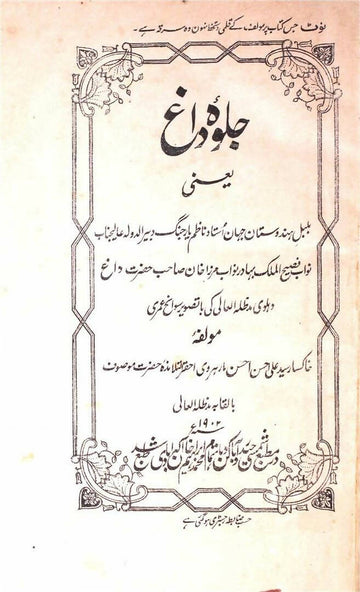 نوٹ جس کتاب پر مولف کے قلمی دستخط نہوں وہ سرقہ ہے۔
جلوۂ داغ
یعنی
بلبل ہندوستان جہان اُستاد ناظم یار جنگ دبیر الدولہ عالیجناب
نواب فصیح الملک بہادر نواب مرزا خان صاحب حضرت داغ
دہلوی مد ظلہ العالی کی با تصویر سوانح عمری
مولفۂ
خاکسار سید علی احسن احسن مارہروی احقر التلامذہ حضرت موصوف
بالقابہ مد ظلہ العالی
۱۹۰۲ء
در مطبع شمسی حیدرآباد دکن
حسب ضابطہ رجسٹری ہو گئی ہے